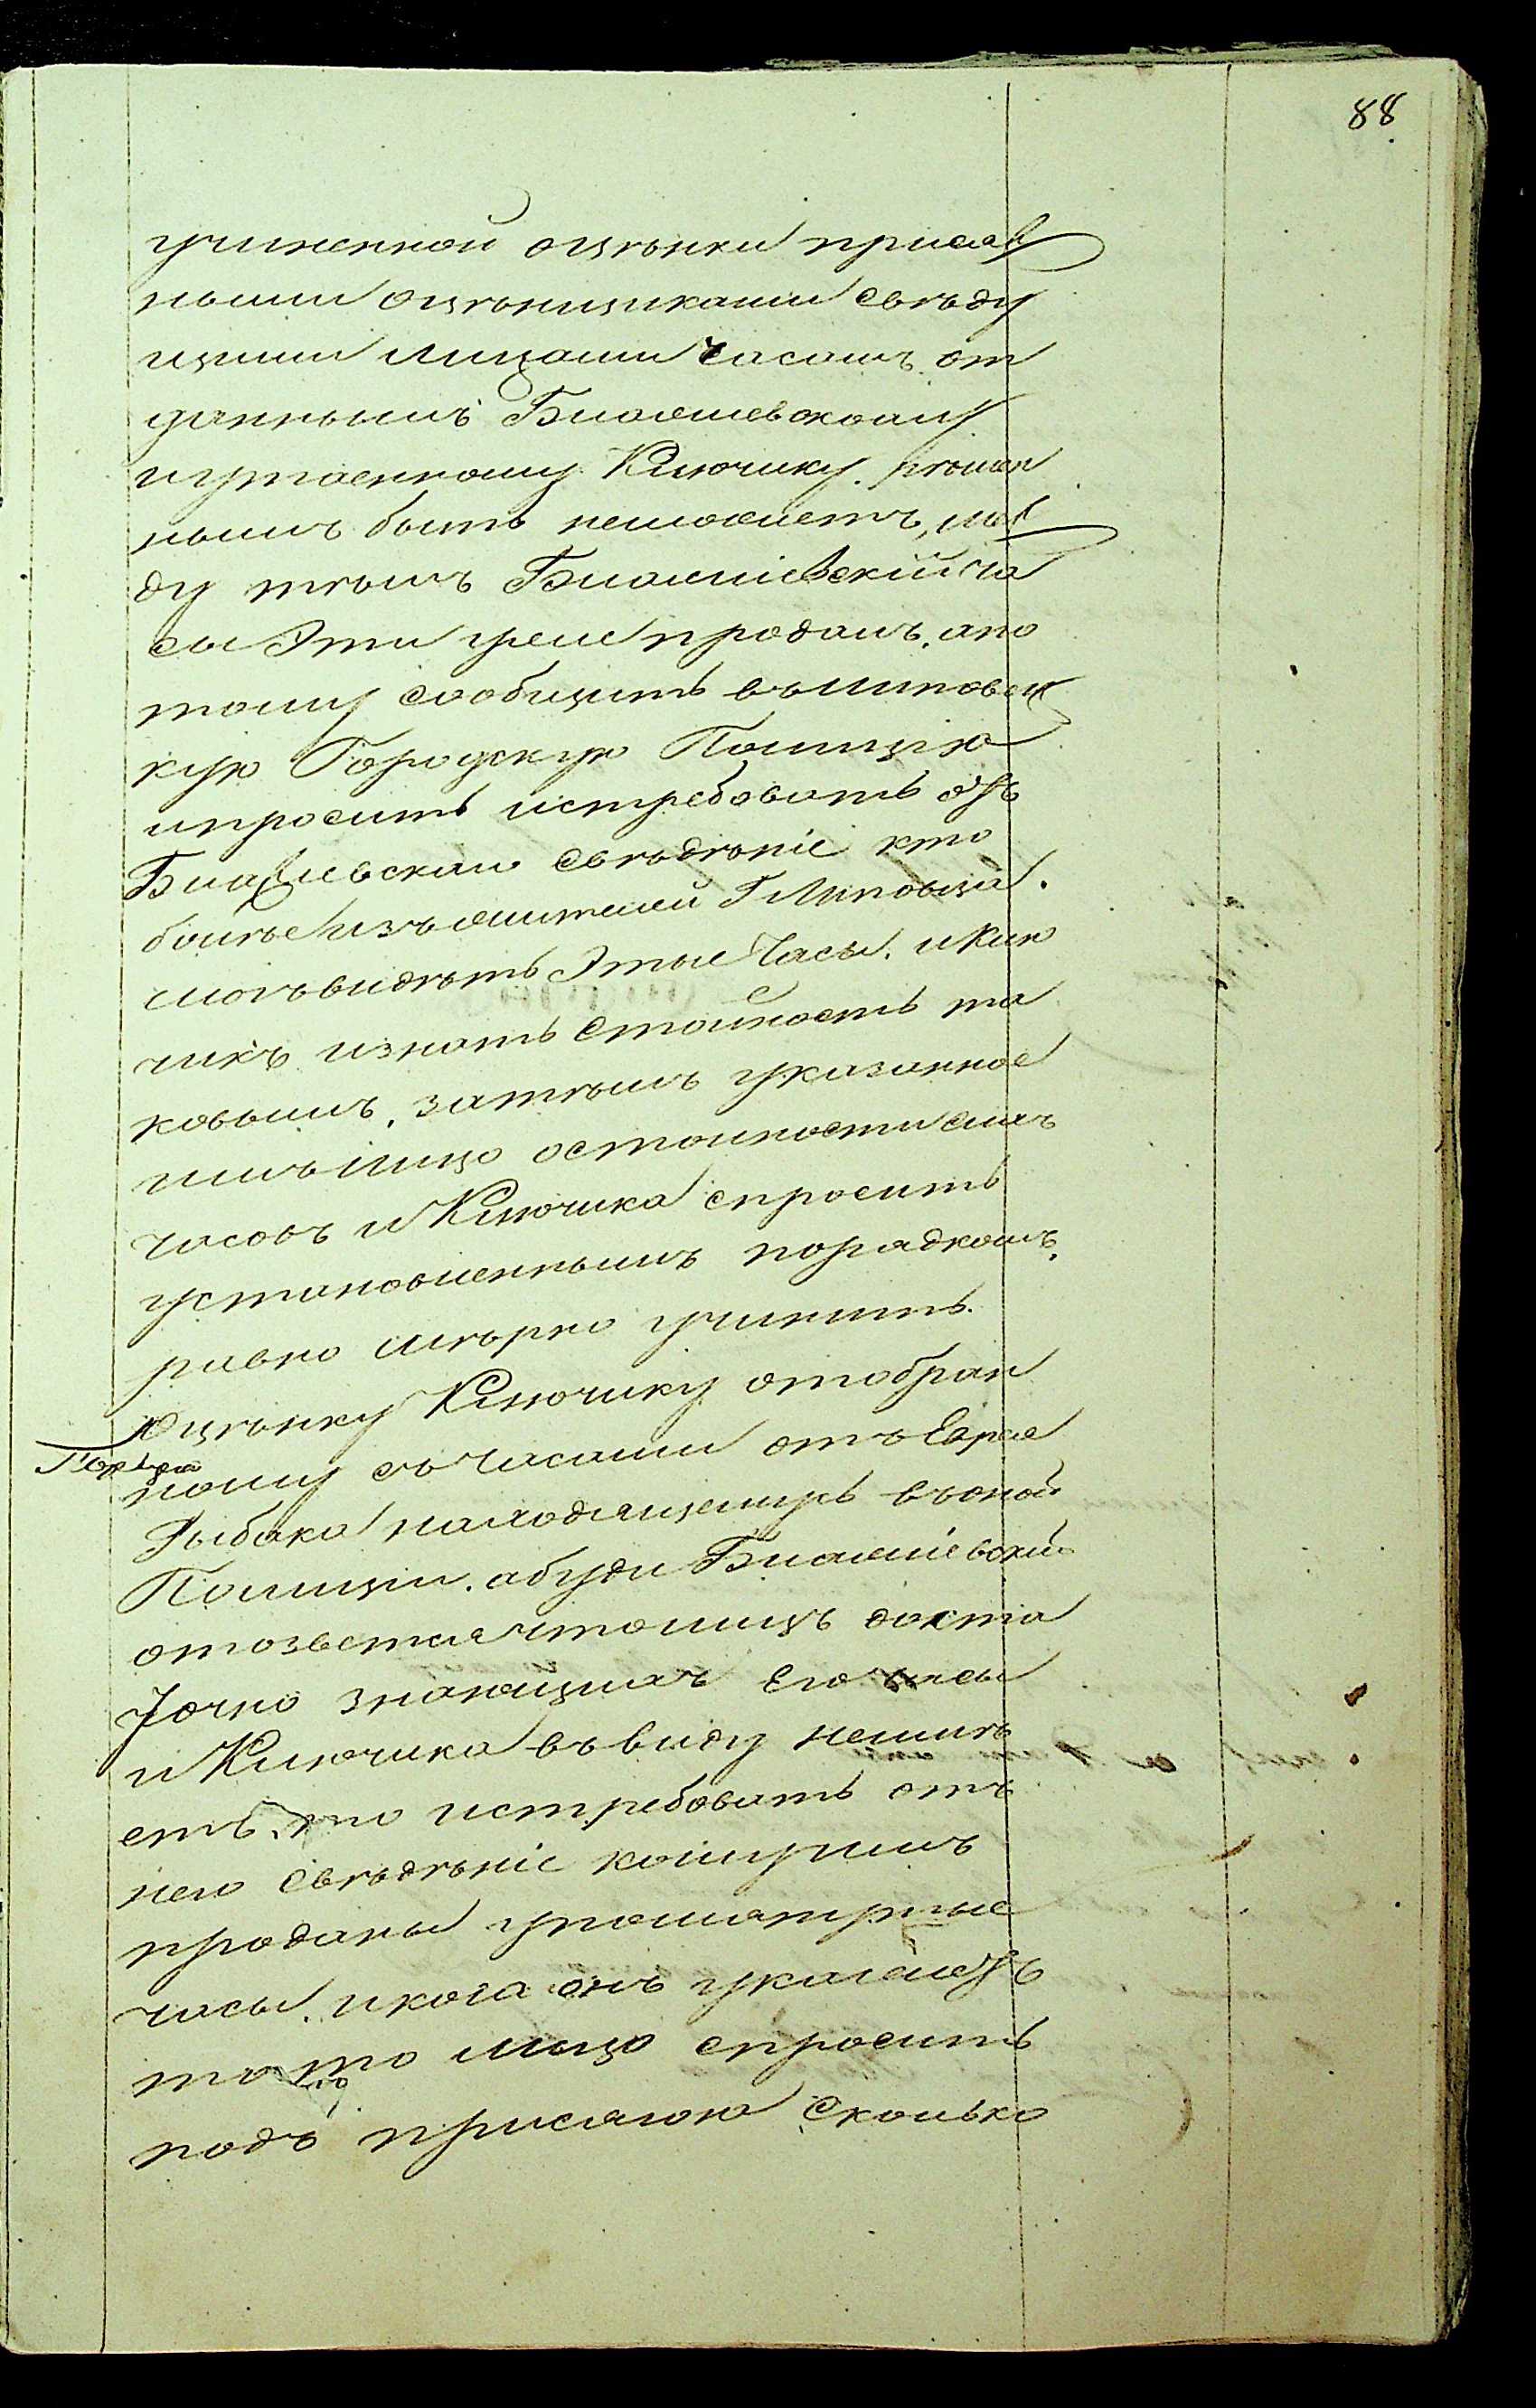 88
учиненной оцѣнки присяж
ными оцѣнщиками свѣду
щими лицами часамъ от
даннымъ Бналиевскому
и утаенному Ключику.
нымъ быть неможетъ, меж
ду тѣмъ Бналиевскій ча
сы Эти уже продалъ, апо
тому сообщить въ Липовец
кую Городскую Полицію
и просить истребовать отъ
Бналиевскаго свѣдѣніе кто
болѣе изъ жителей Г Липовца.
могъ видѣть Этые Часы. и Клю
чикъ и знать стоимость та
ковымъ, затѣмъ указанное
имъ лицо остоимости сихъ
часовъ и Ключика спросить
установленнымъ порядкомъ.
равно мѣрно учинить
Оцѣнку Ключику отобран
ному съ часами отъ Еврея
Герша
Рыбака находящемусь въ оной
Полиціи. а буди Бналиевскій
отозвется что лицъ доста
Точно знающихъ Его часы
и Ключика въ виду неимѣ
етъ, то истребовать отъ
него свѣдѣніе кому имъ
проданы упомянутые
часы. и кога онъ укажетъ
то то лицо спросить
подъ присягою Сколько